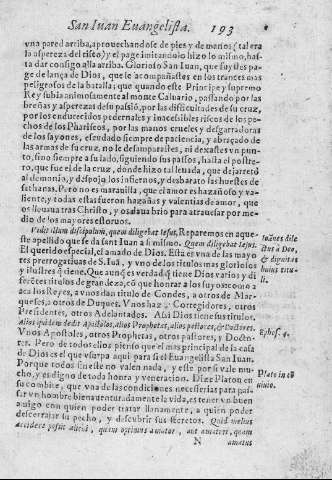 San Iuan Euangelista. 193
vna pared arriba, aprouechandose de pies y de manos (tal era
la aspereza del risco) y el page imitandolo hizo lo mismo, has-
ta dar consigo alla arriba. Glorioso San Iuan, que fuystes pa-
ge de lança de Dios, que le acompañastes en los trances mas
peligrosos de la batalla; que quando este Principe y supremo
Rey subia animosamente al monte Caluario, passando por las
breñas y asperezas de su passiõ, por las dificultades de su cruz,
por los endurecidos pedernales y inacesibles riscos de los pe-
chos de los Phariseos, por las manos crueles y desgarradoras
de los sayones, escudado siempre de paciencia, y abraçado de
las armas de su cruz, no le desamparastes, ni dexastes vn pun-
to, sino siempre a su lado, siguiendo sus passos, hasta el postre-
ro, que fue el de la cruz, donde hizo tal leuada, que dejarretó
al demonia, y despojo los infiernos, y desbarato las huestes de
sathanas. Pero no es marauilla, que el amor es hazañoso y va-
liente, y todas estas fueron hazañas y valentias de amor, que
os lleuaua tras Christo, y os daua brio para atrauesar por me-
dio de los mayores estoruos.
Vidit illum discipulum, quem diligebat Iesus, Reparemos en aque-
ste apellido que se da sant Iuan a si mismo. Quem diligebat Iesus.
El querido especial, el amado de Dios. Esta es vna de las mayo
res prerrogatiuas de S. Iuã, y vno de los titulos mas gloriosos
y illustres q̃ tiene. Que aunq̃ es verdad q̃ tiene Dios varios y di
ferẽtes titulos de grandeza, cõ que honrar a los suyos: como a
ca los Reyes, a vnos dan titulo de Condes, a otros de Mar-
queses, a otros de Duques. Vnos haz y Corregidores, otros
Presidentes, otros Adelantados. Assi Dios tiene sus titulos.
Alios quidem dedit Apostolos, alios Prophetas, alios pastores, & Doctores.
Vnos Apostoles, otros Prophetas, otros pastores, y Docto-
res. Pero de todos ellos pienso que el mas principal de la casa
de Dios es el que vsurpa aqui para si el Euangelista San Iuan.
Porque todos sin este no valen nada, y este por si vale mu-
cho, y es digno de toda honra y veneracion. Dize Platon en
su combite, que vna de las condiciones necessarias para pas-
sar vn hombre bienauenturadamente la vida, es tener vn buen
amigo con quien poder tratar llanamente, a quien poder
descerrajar su pecho, y descubrir sus secretos. Quid melius
accidere possit alicui, quam optimus amator, aut amatori, quam
N amatus
Ioãnes dile
ctus à Deo,
& dignitas
huius titu-
li.
Ephes. 4.
Plato in cõ
uiuio.